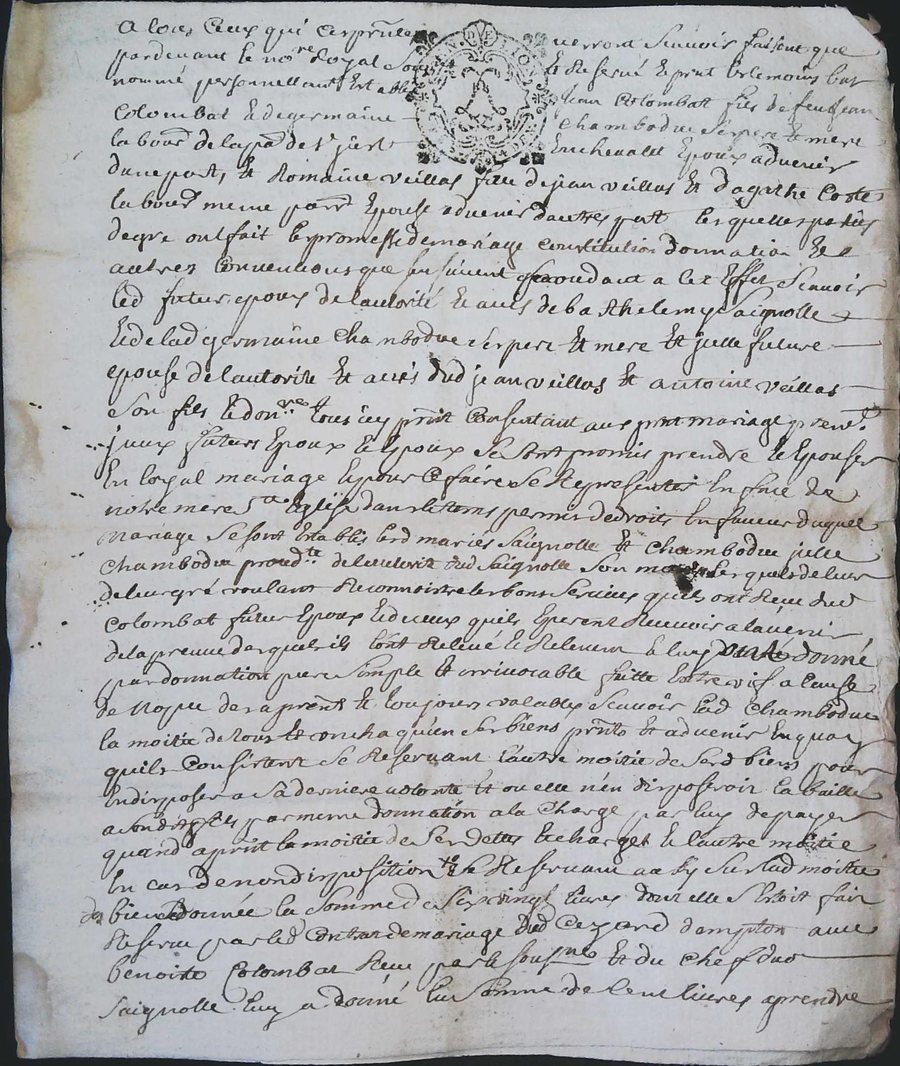 a tous ceux qui ces pntes verront scavoir faisons que
pardevant le nore Royal sousne et Reservé et pnt les temoins bas
nommé personnellement Est able jean Colombat fils de feu jean
Colombat et de germaine Chambodue ses pere et mere
la bour de la par de st just En chevalet Epoux advenir
dune part, et Romaine veillas fille de jean veillas et d'agathe Coste
labour meme parr Epouse advenir d'autres part lesquelles parties
degre ont fait les promesse de mariage constitution donnation et
autres Conventions que sensuivent procedant a cet Effet scavoir
led futur epoux de lautorité et avis de barthelemy saignolle
et de lad germaine chambodue ses pere et mere et jcelle future
epouse de lautorite et avis dud jean veillas et antoine veillas
son fils le don. re tous icy pnts Consentant aux pnt mariage
jceux futurs Epoux et Epouse se sont promis prendre et Epouser
En loyal mariage Et pour ce faire se Representer En face de
notre mere ste Eglise dans le tems permis de droits En faveur duquel
mariage se sont Etablis lesd mariés saignolle et chambodue jcelle
chambodue de lautorité dud saignolle son mary lesquels de leur
de leur gré voulant Reconnoistre les bons services quils ont Receu dud
Colombat futur Epoux et de ceux quils Esperent Recevoir a lavenir
de la preuve desquels ils lont Relevé et Relevent luy ont donné
par donnation pure simple et irrévocable faitte Entre vifs a cause
de Nopce des a present et toujours valable scavoir lad Chambodue
la moitie de tous et un chaqu'un ses biens pnts et advenir En quoy
quils Consistent se Reservant l'autre moitie de sesd biens pour
En disposer a sa derniere volonte et ou elle n'en disposeroit la baille
a sond fils par meme donnation a la Charge par luy de payer
quand a pnt la moitie de ses dettes et charges et l'autre moitie
En cas de non disposition se Reservant sur lad moitie
bien donnée la somme de six vingt livres dont elle s'etoit fait
Reserve par led Contrat de mariage dud avec
benoite Colombat Receu par le sousne et du chef dud
saignolle luy a donné la somme de Cent livres a prendre